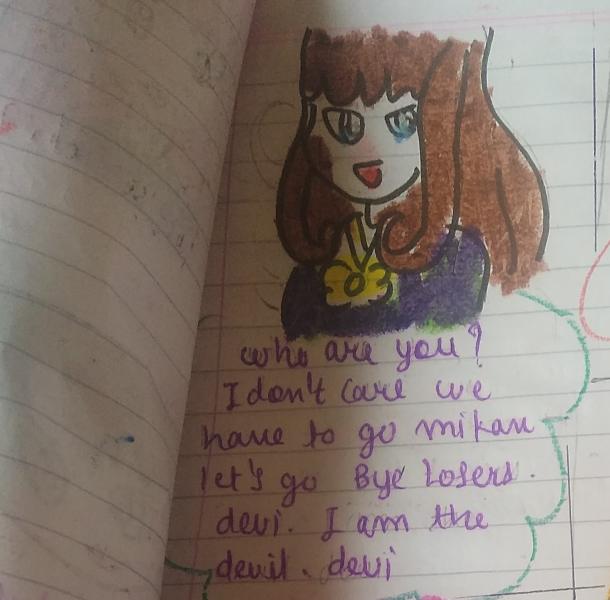 who are you?
I don't care we
have to go mikan
let's go Bye Losers.
devi. I am the
devil. devi